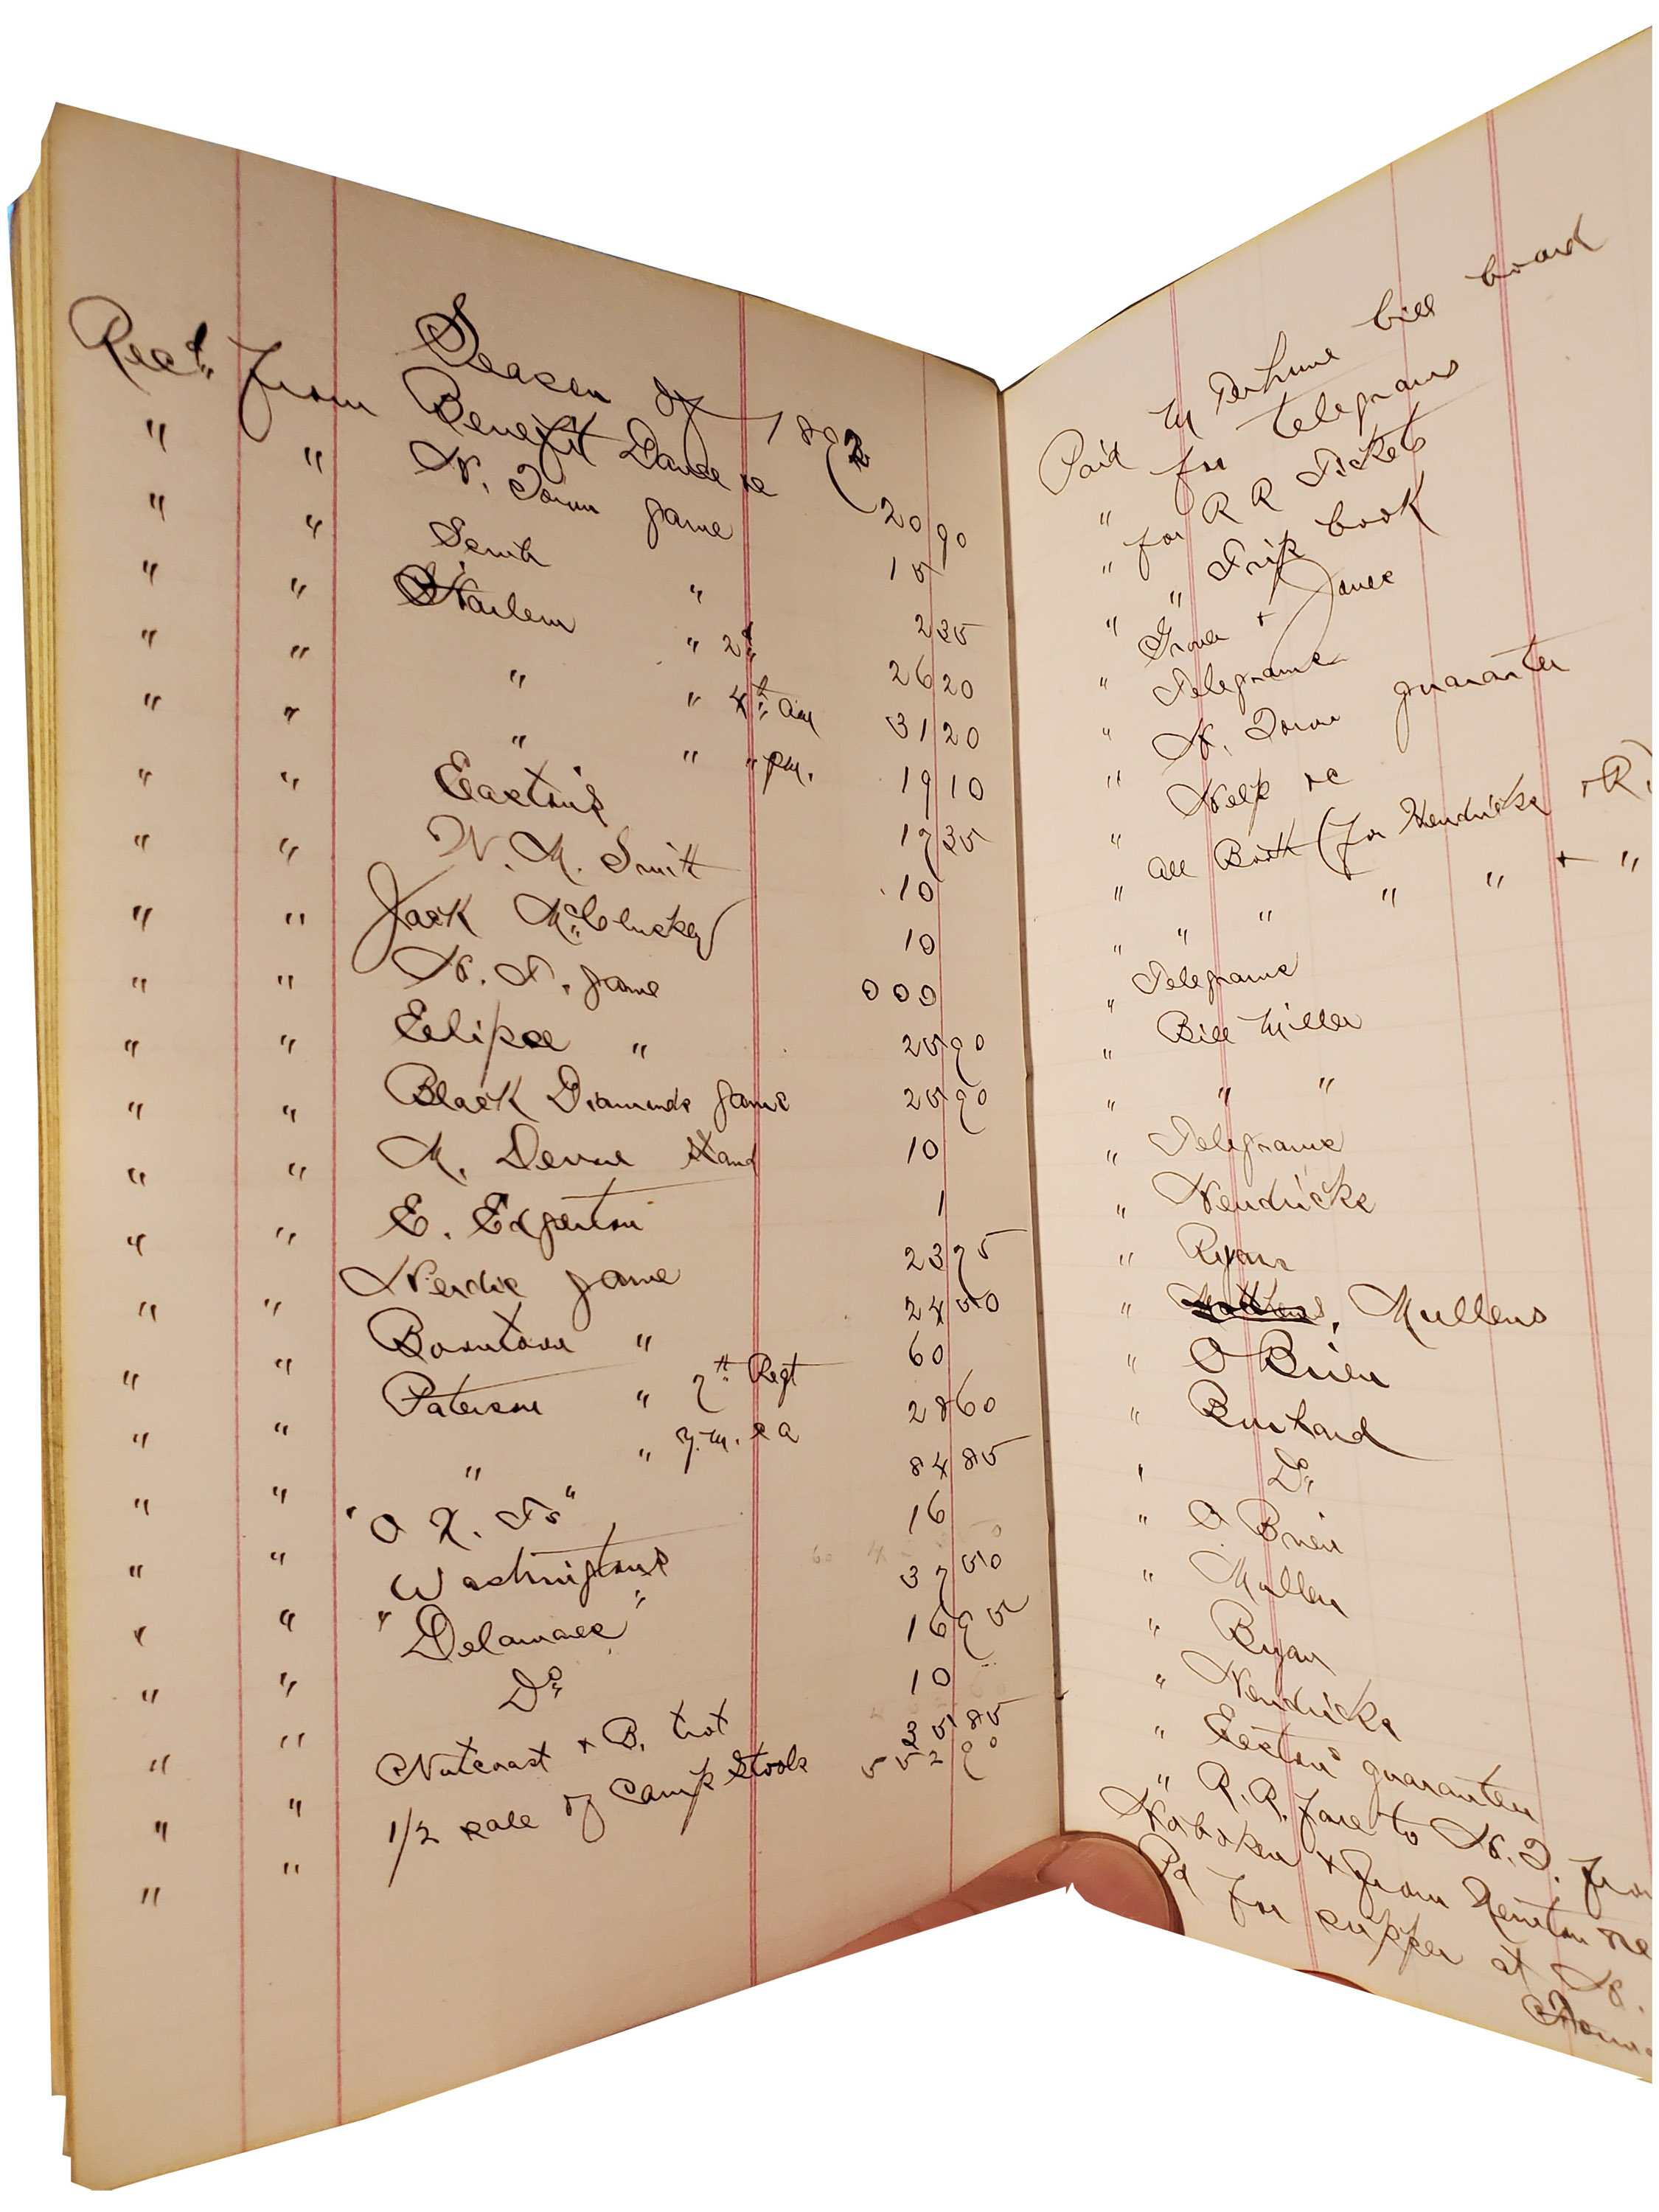 Season of 1892
Recd. from Benefit Dance &c 20 90
" " H. Town game 15
" " Scrub " 2 35
" " Harlem " 2d 26 20
" " " " 4th am 31 20
" " " " " pm. 19 10
" " Eastons 17 35
" " W. M. Smith 10
" " Jack McCluskey 10
" " H. T. game 000
" " Eclipse " 25 90
" " Black Diamonds game 25 90
" " M. Devine stand 10
" " E. Edgerton 1
" " Herdic game 23 75
" " Boonton " 24 50
" " Paterson " 7th Regt 60
" " " " Y.M. C A 28 60
" " "O. K. Js" 84 85
" " Washingtons 16
" " "Delaware" 37 50
" " Do 16 95
" " Nutcrast + B. trot 10
" " 1/2 sale of Camp Stools 35 85
552 90
Paid M Perhune bill board
" for telegrams
" for R R Tickets
" " Trip book
" Grover + Jones
" Telegrams
" H. Town guarantee
" Help &c
" All Both (for Hendricks + R)
" " " " " + "
" Telegrams
" Bill Miller
" " "
" Telegrams
" Hendricks
" Ryan
" Mullens
" O Brien
" Bustard
" Do
" O Brien
" Mullen
" Ryan
" Hendricks
" Easton guarantee
" R. R. fare to H. T. from
Hoboken & from Newton &c
Pd for supper at H.